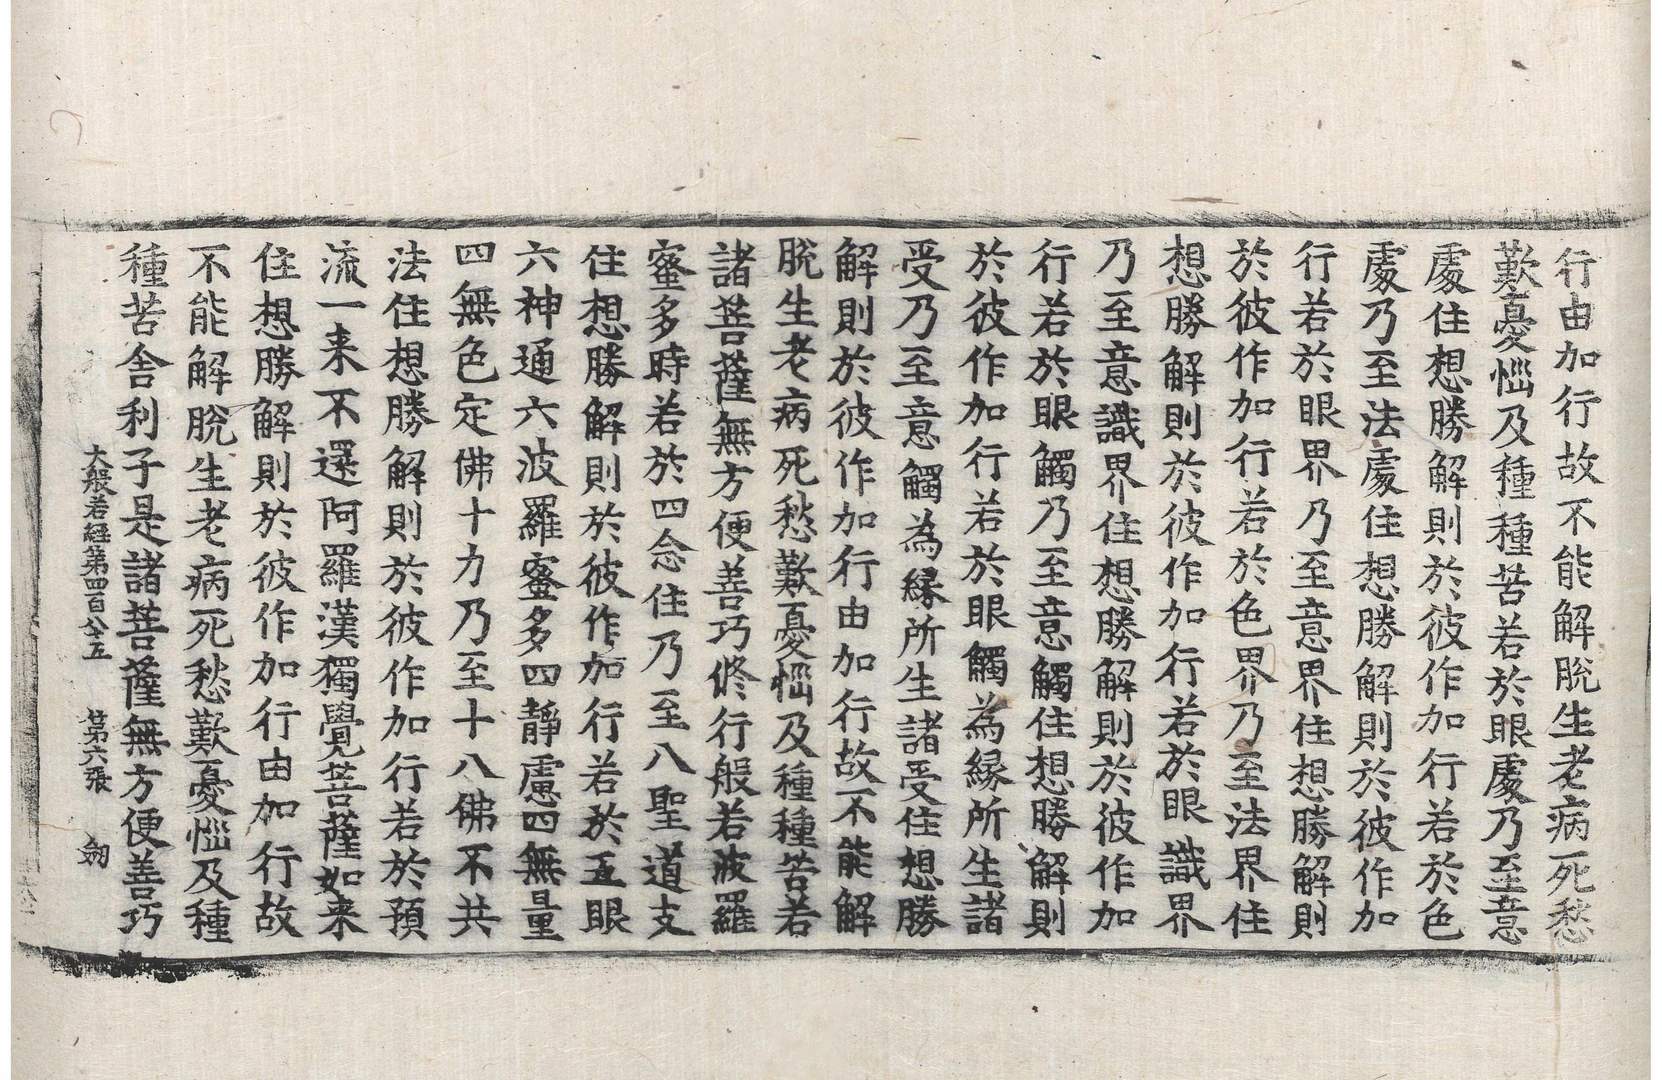 行由加行故不能解脫生老病死愁
歎憂惱及種種苦若於眼處乃至意
處住想勝解則於彼作加行若於色
處乃至法處住想勝解則於彼作加
行若於眼界乃至意界住想勝解則
於彼作加行若於色界乃至法界住
想勝解則於彼作加行若於眼識界
乃至意識界住想勝解則於彼作加
行若於眼觸乃至意觸住想勝解則
於彼作加行若於眼觸為緣所生諸
受乃至意觸為緣所生諸受住想勝
解則於彼作加行由加行故不能解
脫生老病死愁歎憂惱及種種苦若
諸菩薩無方便善巧修行般若波羅
蜜多時若於四念住乃至八聖道支
住想勝解則於彼作加行若於五眼
六神通六波羅蜜多四靜慮四無量
四無色定佛十力乃至十八佛不共
法住想勝解則於彼作加行若於預
流一来不還阿羅漢獨覺菩薩如来
住想勝解則於彼作加行由加行故
不能解脫生老病死愁歎憂惱及種
種苦舍利子是諸菩薩無方便善巧
大般若經第四百八五 第六張 劒